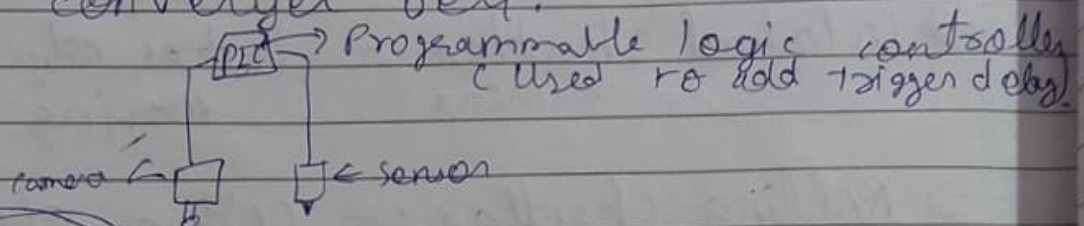 converger belt.
PLC → Programmable logic controller
(Used to add Trigger delay)
camera ← sensor